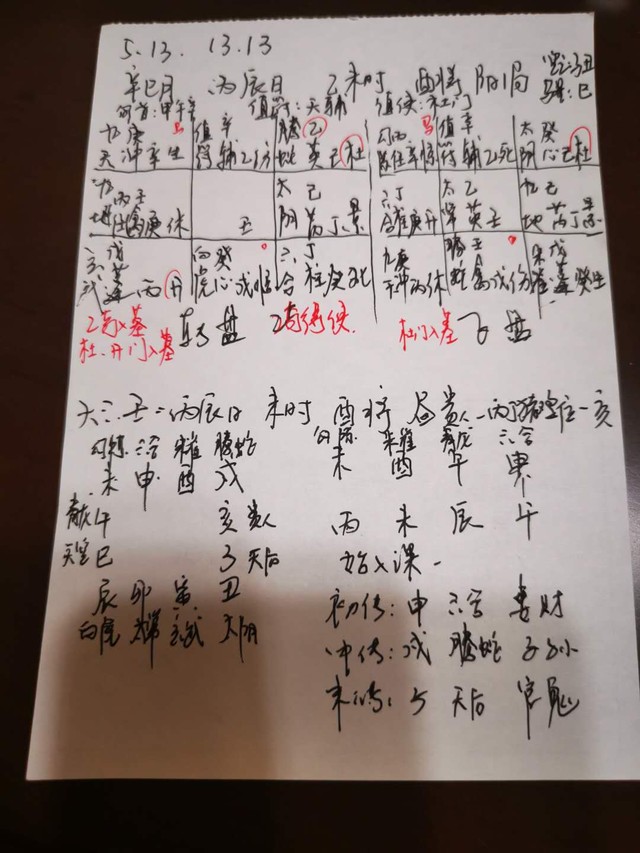 5.13. 13.13
辛巳月 丙辰日 乙未时 酉将 阳1局 空:子丑
旬首:甲午辛 值符:天辅 值使:杜门 马星:巳
九庚 马 值辛 腾乙 勾丙 马 值辛 太癸
天冲辛生 符辅乙伤 蛇英己杜 陈任辛惊 符辅乙死 阴心己杜
九丙壬 太己 六丁 太乙 九己
地任禽庚休 丑 阴芮丁景 合柱庚开 常英壬 地芮丁景
玄戊 白癸 六丁 九庚 腾壬 朱戊
武蓬丙开 虎心戊惊 合柱癸死 天冲丙休 蛇禽戊伤 雀蓬癸生
乙奇入墓 转盘 乙奇得使 杜门入墓 飞盘
杜、开门入墓
大六壬:丙辰日 未时 酉将 昼贵人-丙丁猪鸡位-亥
勾陈 六合 朱雀 腾蛇 勾陈 朱雀 青龙 六合
未 申 酉 戌 未 酉 午 申
青龙午 亥贵人 丙 未 辰 午
天空巳 子天后 始入课-
辰 卯 寅 丑 初传:申 六合 妻财
白虎 太常 玄武 太阴 中传:戌 腾蛇 子孙
末传:子 天后 官鬼